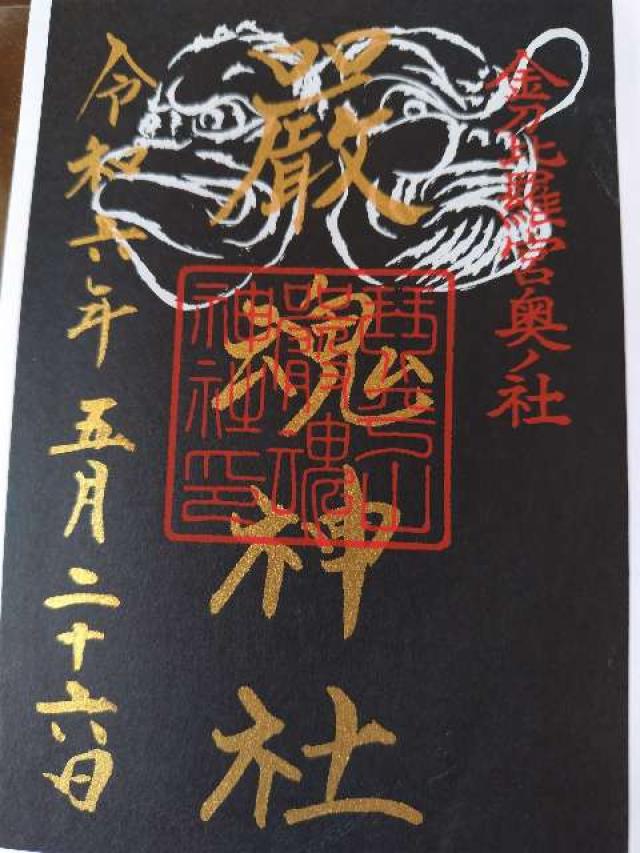 金刀比羅宮奥ノ社
嚴魂神社
琴平山
嚴魂
神社印
令和六年五月二十六日